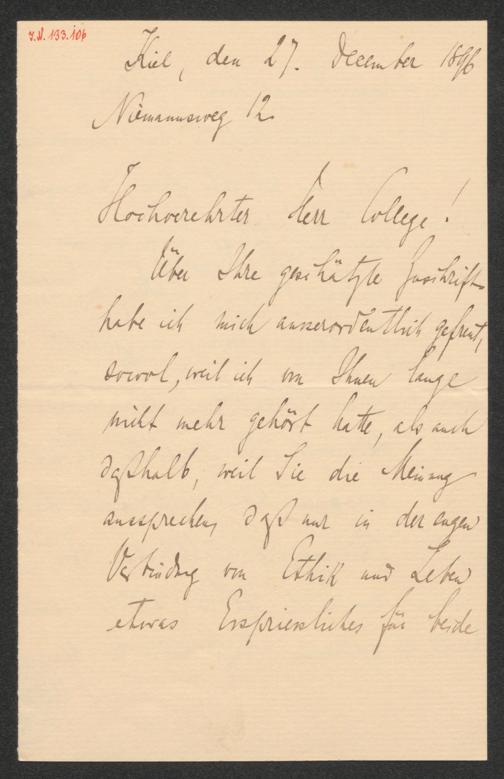 I.N. 133.106
Kiel, den 27. December 1896
Niemannsweg 12.
Hochverehrter Herr College!
Über Ihre geschätzte Zuschrift
habe ich mich ausserordentlich gefreut,
sowol, weil ich von Ihnen lange
nicht mehr gehört hatte, als auch
daßhalb, weil Sie die Meinung
aussprechen, daß nur in der engen
Verbindung von Ethik und Leben
etwas Erspriessliches für beide